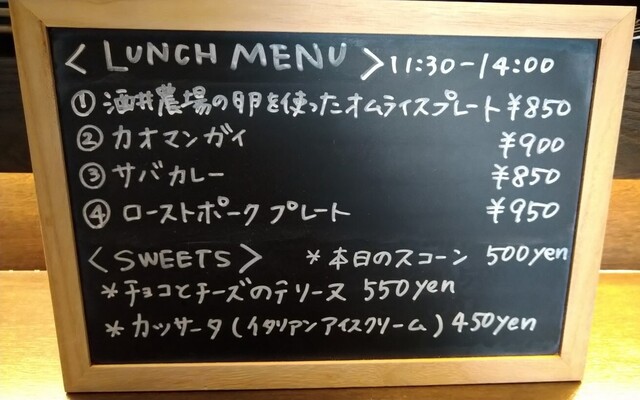 < LUNCH MENU > 11:30-14:00
① 酒井農場の卵を使ったオムライスプレート ¥850
② カオマンガイ ¥900
③ サバカレー ¥850
④ ローストポークプレート ¥950
< SWEETS > *本日のスコーン 500yen
*チョコとチーズのテリーヌ 550yen
*カッサータ(イタリアンアイスクリーム) 450yen